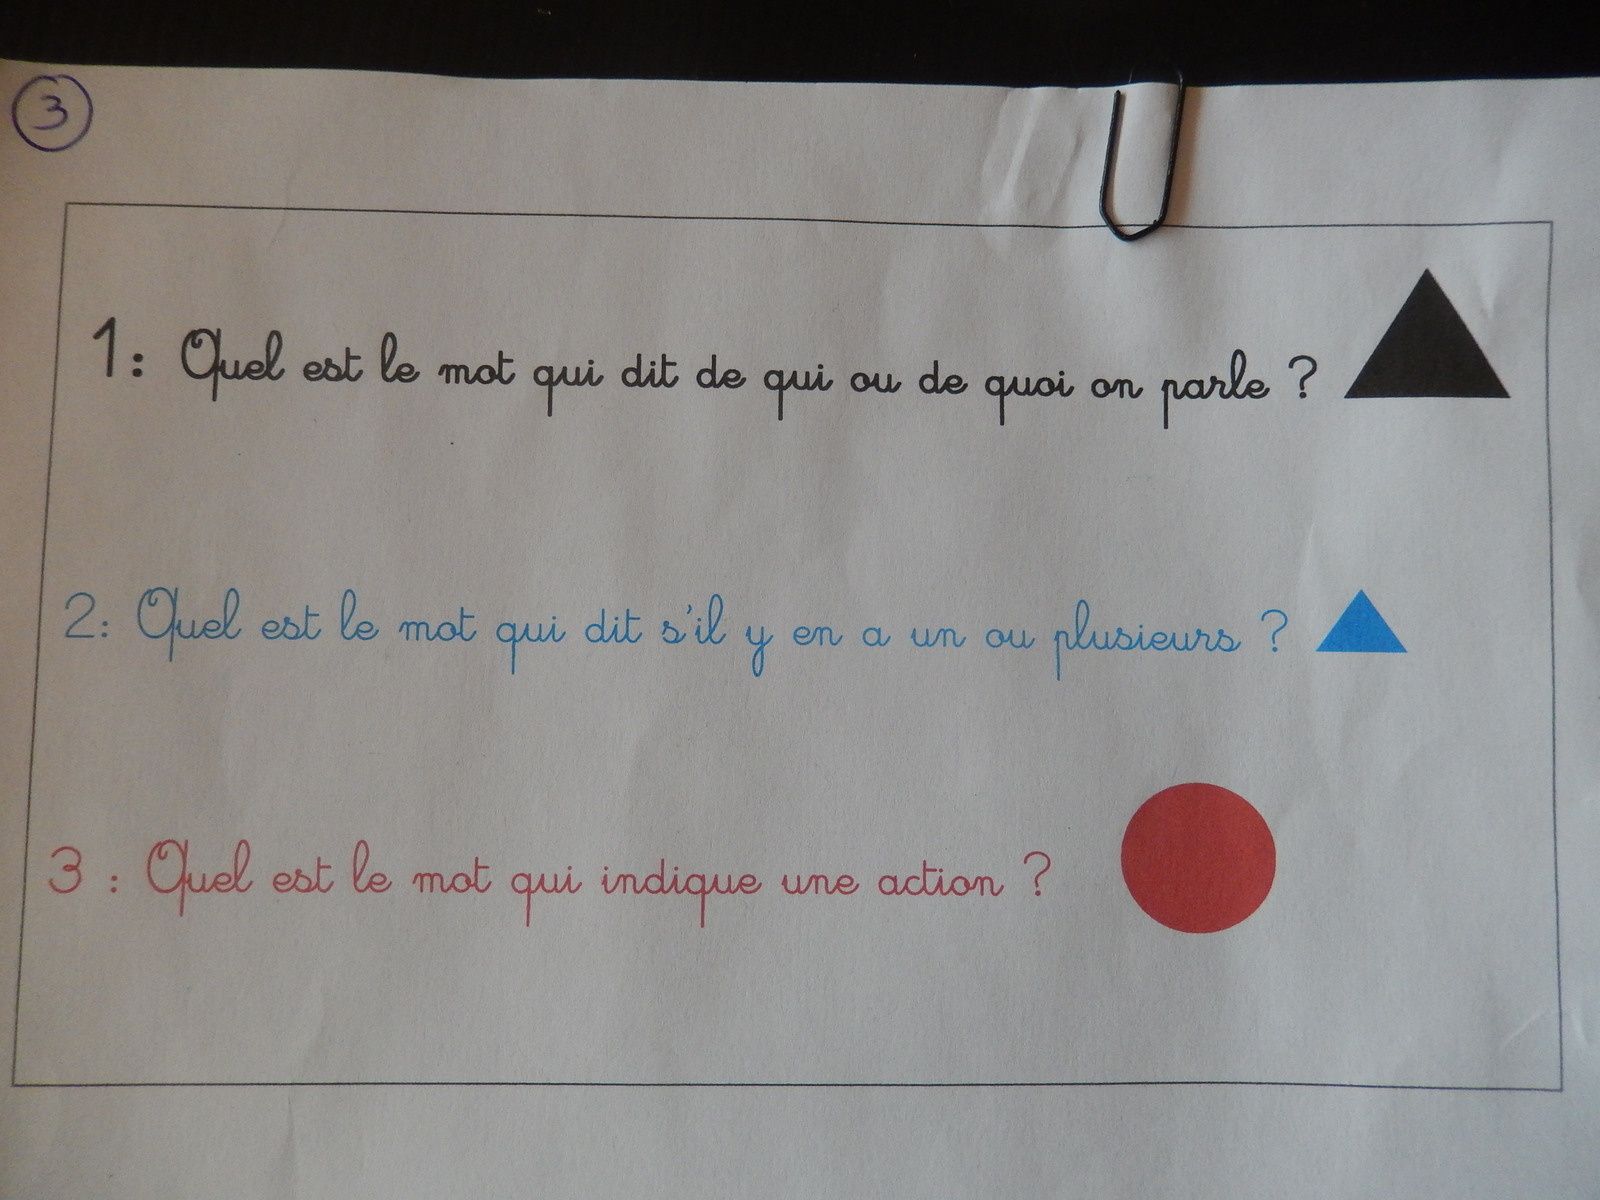 3
1: Quel est le mot qui dit de qui ou de quoi on parle ?
2: Quel est le mot qui dit s'il y en a un ou plusieurs ?
3 : Quel est le mot qui indique une action ?